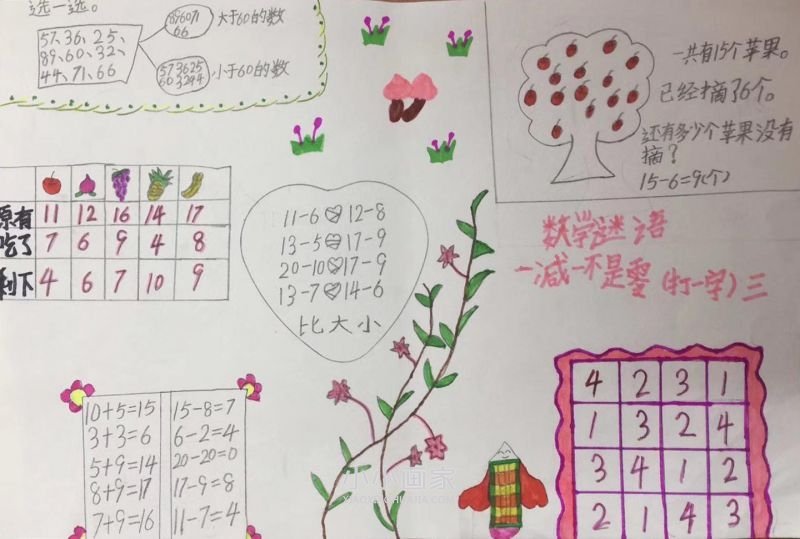 选一选。
57、36、25、
89、60、32、
44、71、66
896071
66
大于60的数
573625
603244
小于60的数
一共有15个苹果。
已经摘了6个。
还有多少个苹果没有
摘？
15-6=9(个)
原有 11 12 16 14 17
吃了 7 6 9 4 8
剩下 4 6 7 10 9
11-6 12-8
13-5 17-9
20-10 17-9
13-7 14-6
比大小
数学谜语
一减一不是零(打一字)三
10+5=15 15-8=7
3+3=6 6-2=4
5+9=14 20-20=0
8+9=17 17-9=8
7+9=16 11-7=4
4 2 3 1
1 3 2 4
3 4 1 2
2 1 4 3
小小画家
XIAOXIAOHUAJIA.COM